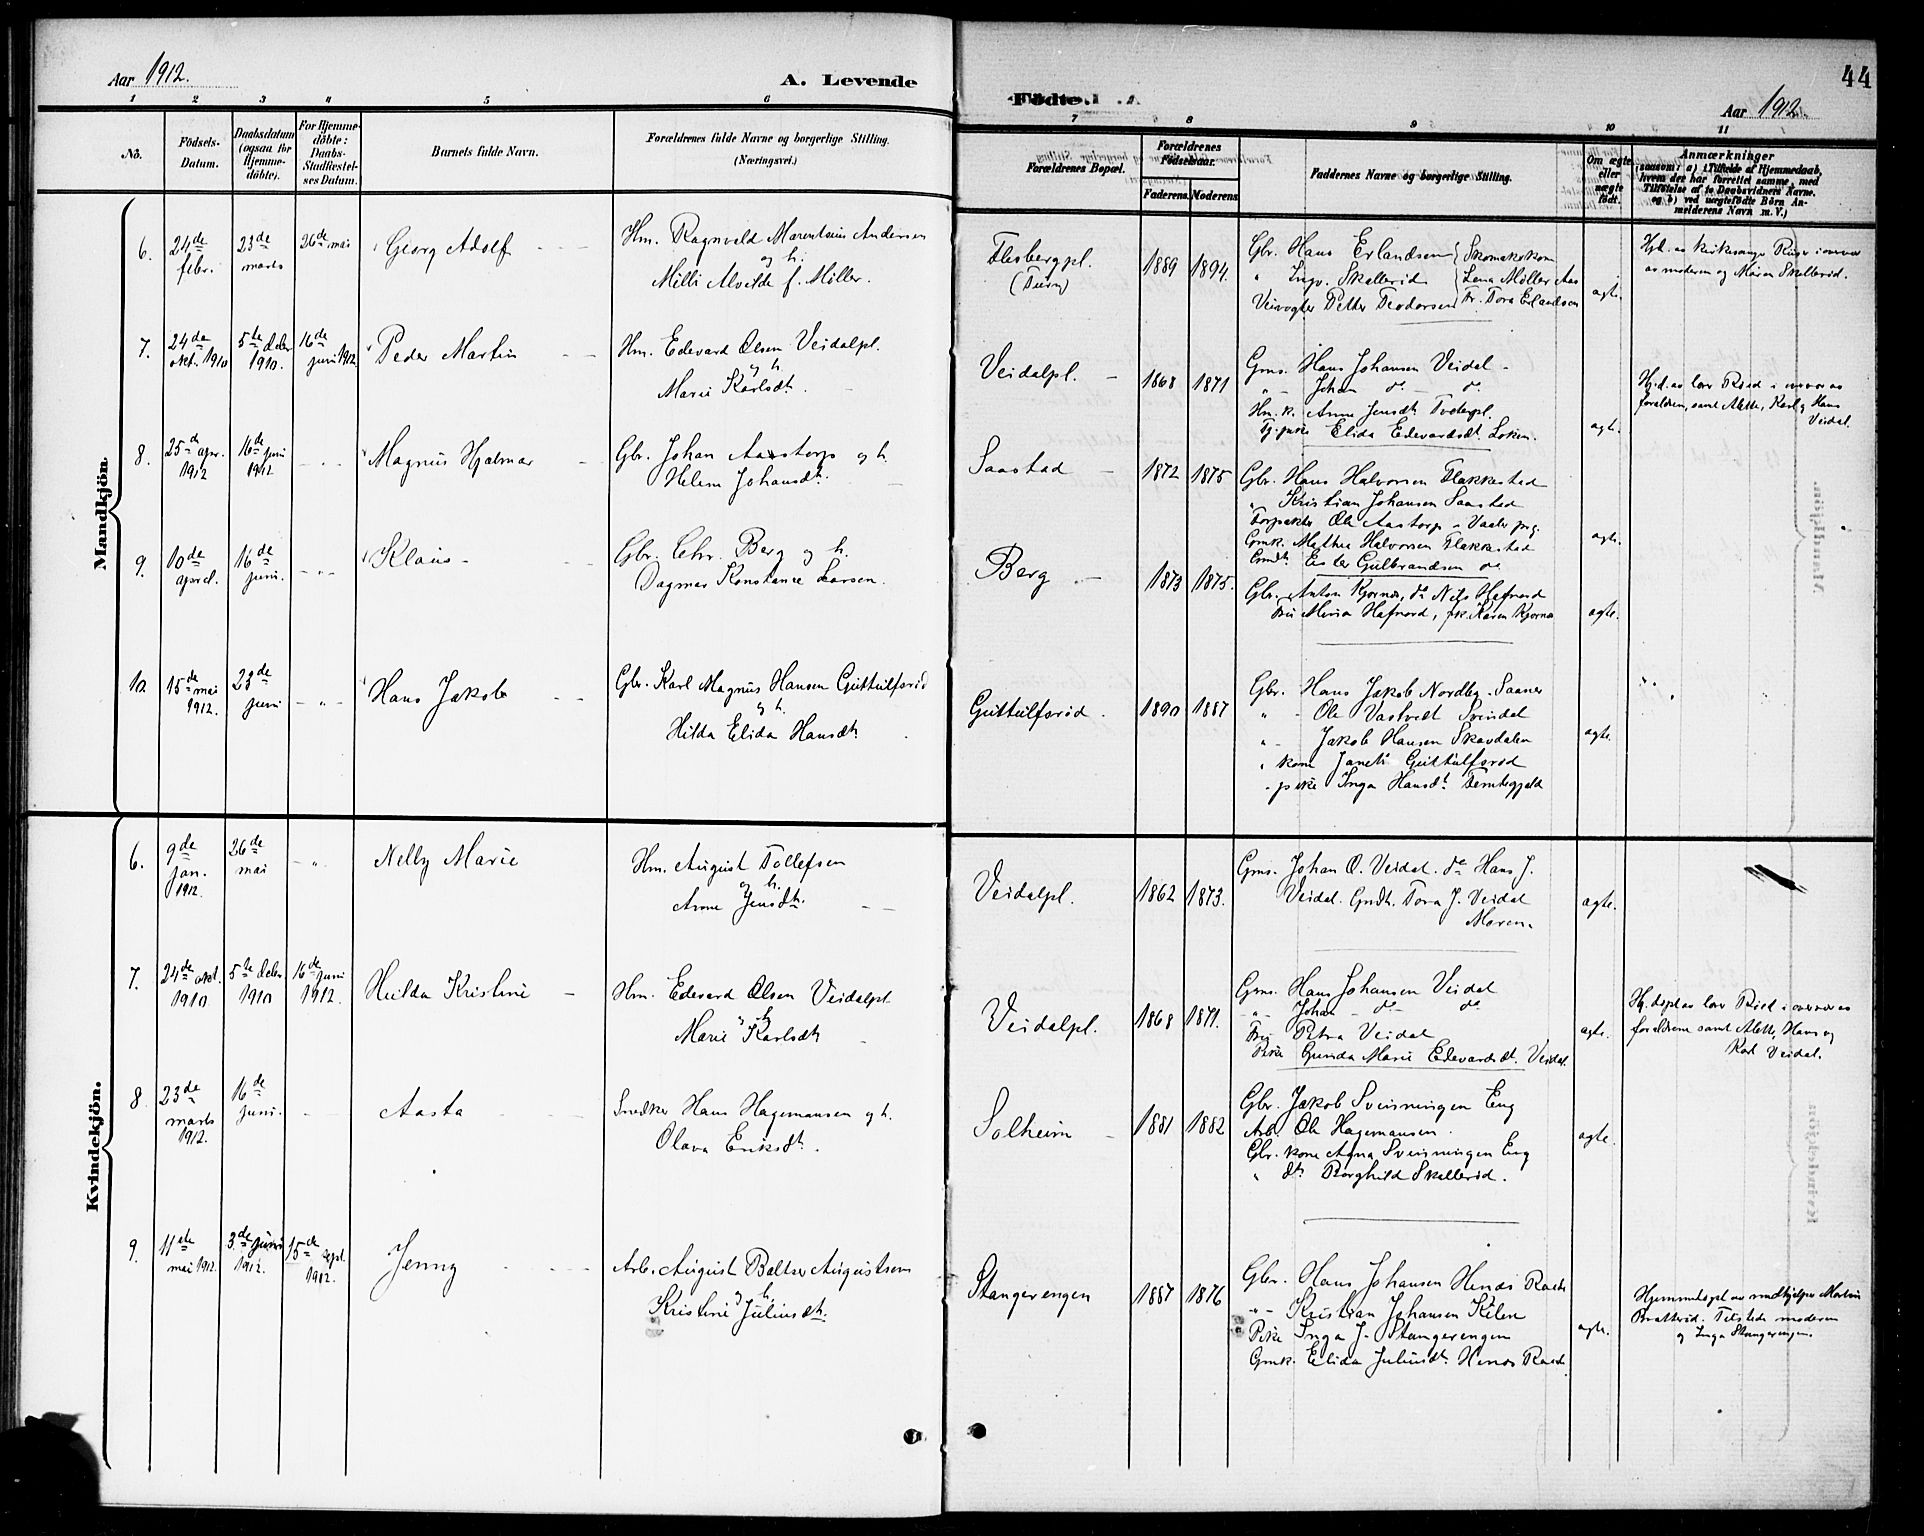 Aar 1912.
A. Levende
1 2 3 4 5 6
No.
Födsels-Datum.
Daabsdatum (ogsaa for Hjemme-döbte).
For Hjemme-döbte: Daabs-Stadfæstel-ses Datum.
Barnets fulde Navn.
Forældrenes fulde Navne og borgerlige Stilling.
(Næringsvei.)
Mandkjön.
6. 24de febr. 23de marts 26de mai Georg Adolf Hm. Ragnvald Marentsius Andersen
og h.
Milli Alvilde f. Möller.
7. 24de okt. 1910 5te deber 1910. 16de juni 1912. Peder Martin Hm. Edevard Olsen Veidalpl.
og h.
Marie Karlsdt.
8. 25de apr. 1912 16de juni 1912 - " - Magnus Hjalmar Gbr. Johan Aastorp og h.
Helene Johansdt.
9. 10de april. 16de juni. - " - Klaus Gbr. Chr. Berg og h.
Dagmar Konstance Larsen.
10. 15de mai 1912. 23de juni - " - Hans Jakob Gbr. Karl Magnus Hansen Guttulfsröd
og h.
Hilda Elida Hansdt.
Kvindekjön.
6. 9de jan. 1912. 26de mai - " - Nelly Marie Hm. August Tollefsen
og h.
Anne Jensdt.
7. 24de okt. 1910 5te deber 1910 16de juni 1912. Hulda Kristine Hm. Edevard Olsen Veidalpl.
og h.
Marie Karlsdt.
8. 23de marts 1912. 16de juni. Aasta Snedker Hans Hagemansen og h.
Olava Eriksdt.
9. 11te mai 1912. 3de juni 1912. 15de sept. 1912. Jenny Arb. August Baltser Augustsen
og h.
Kristine Juliusdt.
44
Födte.
Aar 1912.
7 8 9 10 11
Forældrenes Bopæl.
Forældrenes Födselsaar.
Faderens. Moderens.
Faddernes Navne og borgerlige Stilling.
Om ægte eller uægte födt.
Anmærkninger
(saasom: a) i Tilfælde af Hjemmedaab, hvem der har forrettet samme, med Tilföielse af to Daabsvidners Navne. og b) ved uægtefödte Börn An-melderens Navn m. V.)
Flesbergpl. 1889 1894. Gbr. Hans Erlandsen
(Turn) " Ingv. Skallerød Lena Møller Aas
Veivogter Petter Teodorsen Fr. Tora Erlandsen
ægte.
av moderen og Maren Skallerød.
Veidalpl. 1868 1871 Gms. Hans Johansen Veidal
" - Johan do - do
Hm. k. Anne Jensdt.
Elida Edevardsdt. Loken.
ægte.
Hjd. av lær. Röed i overvær av
forældrene, samt Alette, Karl og Hans
Veidal.
Saastad 1872 1875 Gbr. Hans Halvorsen Flakkestad
" Kristian Johansen Saastad
Forpakter Ole Aastorp
Gmk. Mathea Halvorsen Flakkestad
Gulbrandsen do
ægte.
Berg 1873 1875. Gbr. Anton Kjærnes, do Nils Hafnord
Fru Mina Hafnord, frk. Karen Kjærnes
ægte.
Guttulfsröd 1890 1887 Gbr. Hans Jakob Nordby - Saaner
" - Ole Vastvedt Svindal
" - Jakob Hansen Skavdalen
" kone Janeti Guttulfsröd
" pike Inga Hansdt.
ægte.
Veidalpl. 1862 1873. Gms. Johan O. Veidal. do Hans J.
Veidal. Gmdt. Tora J. Veidal
Maren
ægte.
Veidalpl. 1868 1871. Gms. Hans Johansen Veidal
- " - Johan - do - do
Fru Petra Veidal
Pike Gunda Marie Edevardsdt. Veidal.
ægte.
Hj. döpt av lær Röed i overvær av
forældrene samt Alette, Hans og
Karl Veidal.
Solheim 1881 1882 Gbr. Jakob Sveinningen Eng
Arb. Ole Hagemansen.
Gbr. kone Anna Sveinningen Eng
" dt. Borghild Skallerød.
ægte.
Stangerengen 1887 1876 Gbr. Hans Johansen
" - Kristian Johansen Kilen
Pike Inga J. Stangerengen
Gmk. Elida Juliusdt.
ægte.
Hjemmedöpt av nödhjelper Martin
Bratteröd. Tilstede moderen
og Inga Stangerengen.